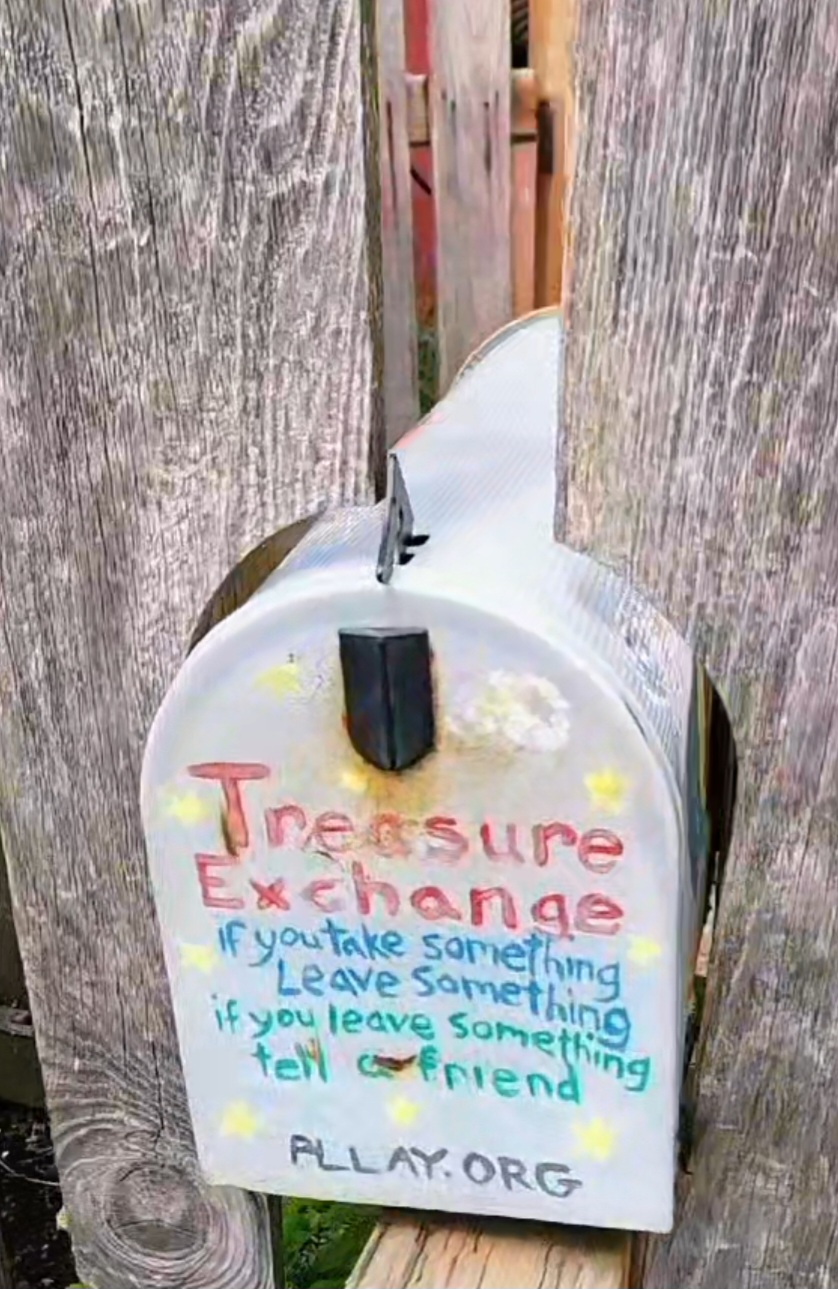 Treasure
Exchange
if you take something
Leave something
if you leave something
tell a friend
PLLAY.ORG